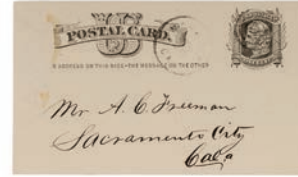 POSTAL CARD.
ADDRESS ON THIS SIDE-THE MESSAGE ON THE OTHER
Mr A. C. Freeman
Sacramento City
Cala